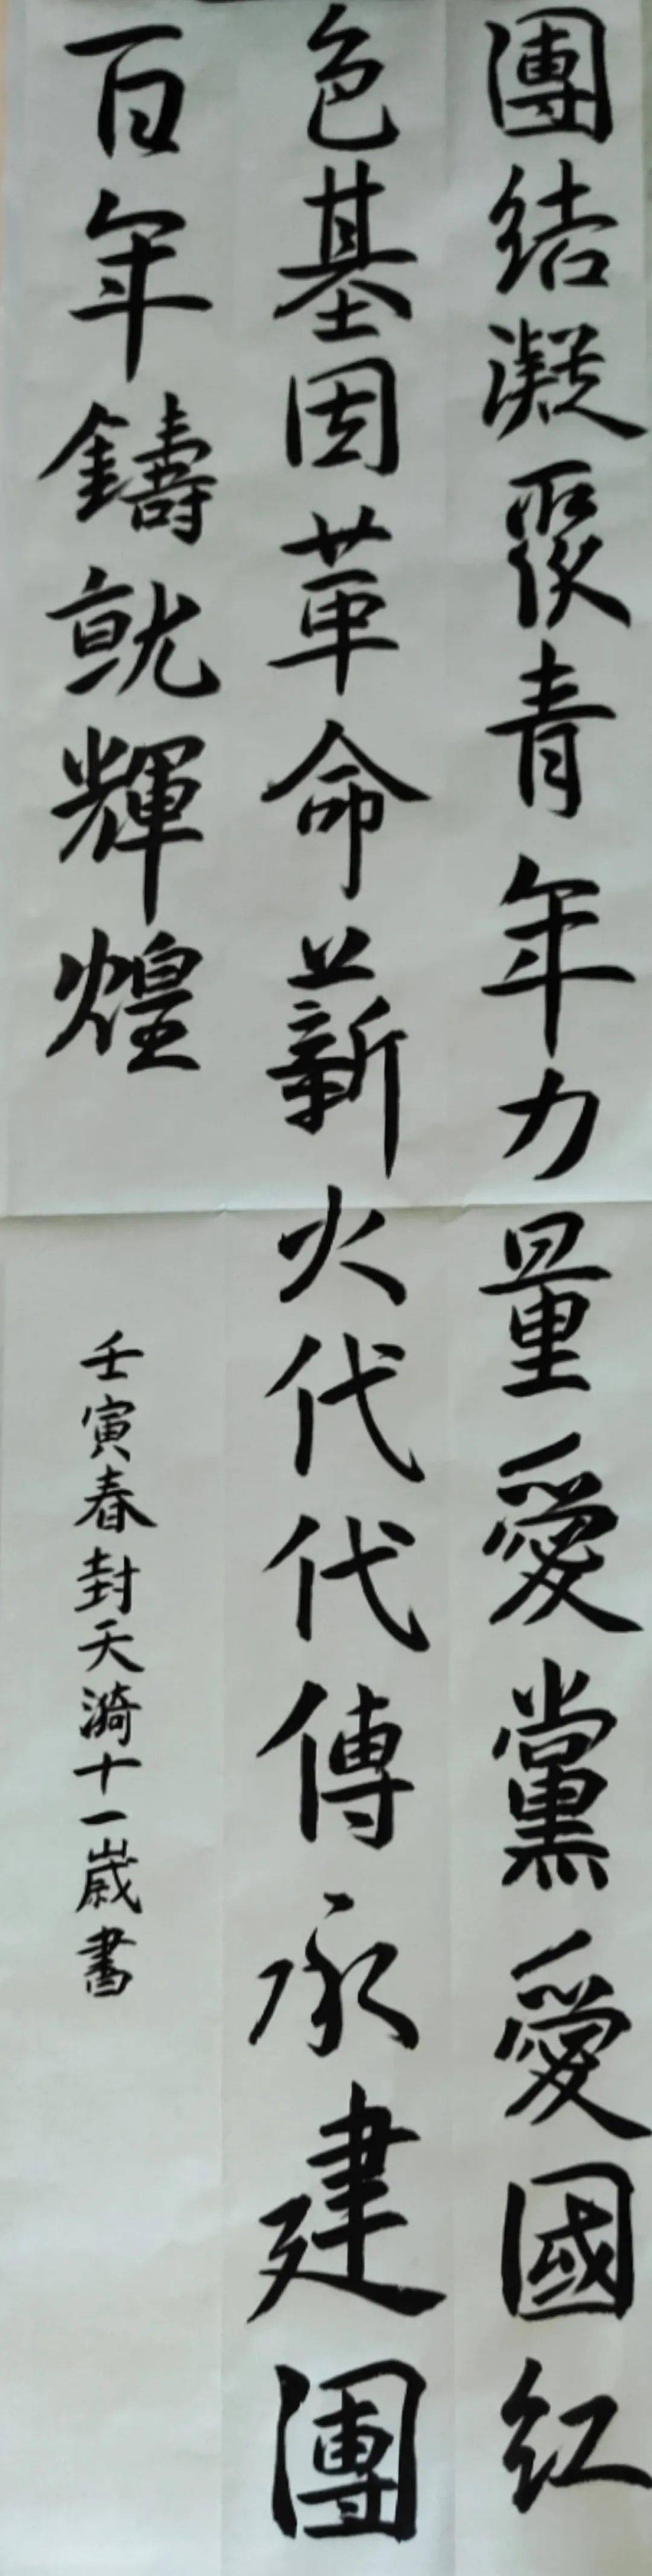 團結凝聚青年力量愛黨愛國红
色基因革命薪火代代傳承建團
百年鑄就輝煌
壬寅春封天漪十一歲書